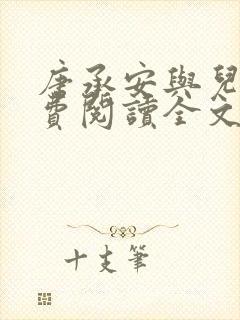 唐承安與兒
費閱讀全文
十支筆